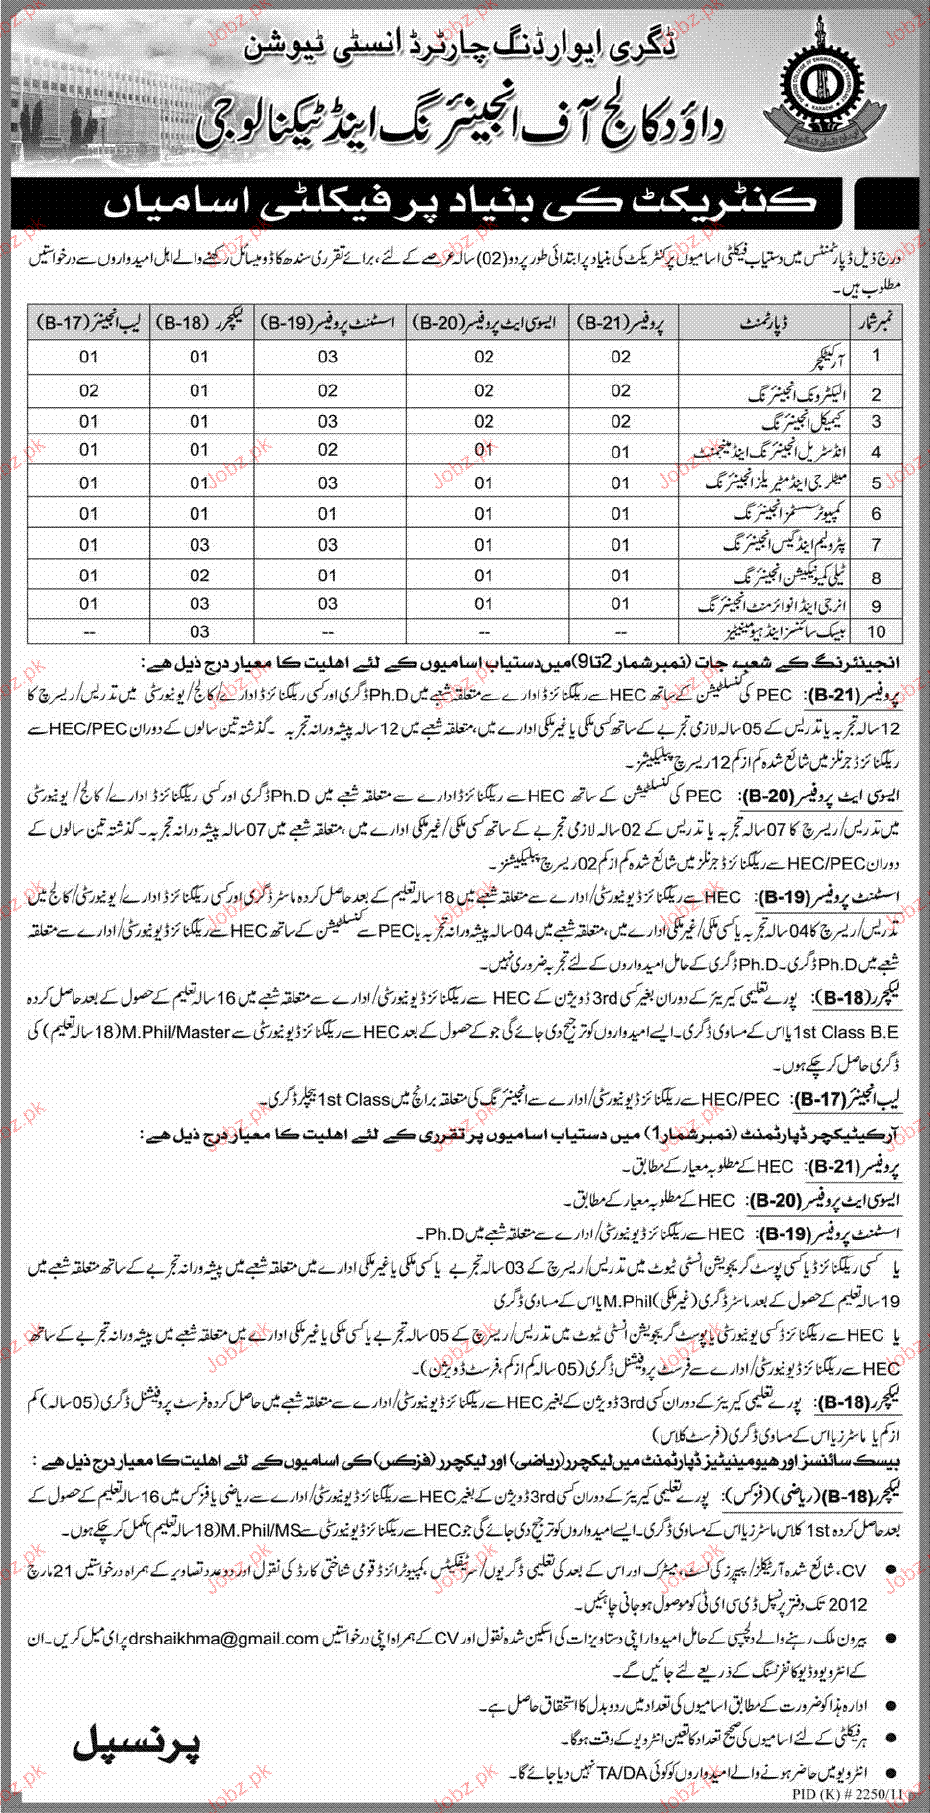 ڈگری ایوارڈنگ چارٹرڈ انسٹی ٹیوشن
داؤد کالج آف انجینئرنگ اینڈ ٹیکنالوجی
کنٹریکٹ کی بنیاد پر فیکلٹی اسامیاں
درج ذیل ڈپارٹمنٹس میں دستیاب فیکلٹی اسامیوں پر کنٹریکٹ کی بنیاد پر ابتدائی طور پر دو (02) سالہ عرصے کے لئے، برائے تقرری سندھ کا ڈومیسائل رکھنے والے اہل امیدواروں سے درخواستیں
مطلوب ہیں۔
نمبر شمار ڈپارٹمنٹ پروفیسر (B-21) ایسوسی ایٹ پروفیسر (B-20) اسسٹنٹ پروفیسر (B-19) لیکچرر (B-18) لیب انجینئر (B-17)
1 آرکیٹیکچر 02 02 03 01 01
2 الیکٹرونک انجینئرنگ 02 02 02 01 02
3 کیمیکل انجینئرنگ 02 02 03 01 01
4 انڈسٹریل انجینئرنگ اینڈ مینجمنٹ 01 01 02 01 01
5 میٹلرجی اینڈ میٹریلز انجینئرنگ 01 01 03 01 01
6 کمپیوٹر سسٹمز انجینئرنگ 01 01 01 01 01
7 پٹرولیم اینڈ گیس انجینئرنگ 01 01 03 03 01
8 ٹیلی کمیونیکیشن انجینئرنگ 01 01 01 02 01
9 انرجی اینڈ انوائرمنٹ انجینئرنگ 01 01 03 03 01
10 بیسک سائنسز اینڈ ہیومینیٹیز -- -- -- 03 --
انجینئرنگ کے شعبہ جات (نمبر شمار 2 تا 9) میں دستیاب اسامیوں کے لئے اہلیت کا معیار درج ذیل ھے:
پروفیسر (B-21): PEC کی کنسلٹیشن کے ساتھ HEC سے ریکگنائزڈ ادارے سے متعلقہ شعبے میں Ph.D ڈگری اور کسی ریکگنائزڈ ادارے/کالج/یونیورسٹی میں تدریس/ریسرچ کا
12 سالہ تجربہ یا تدریس کے 05 سالہ لازمی تجربے کے ساتھ کسی ملکی یا غیر ملکی ادارے میں، متعلقہ شعبے میں 12 سالہ پیشہ ورانہ تجربہ۔ گذشتہ تین سالوں کے دوران HEC/PEC سے
ریکگنائزڈ جرنلز میں شائع شدہ کم از کم 12 ریسرچ پبلیکیشنز۔
ایسوسی ایٹ پروفیسر (B-20): PEC کی کنسلٹیشن کے ساتھ HEC سے ریکگنائزڈ ادارے سے متعلقہ شعبے میں Ph.D ڈگری اور کسی ریکگنائزڈ ادارے/کالج/یونیورسٹی
میں تدریس/ریسرچ کا 07 سالہ تجربہ یا تدریس کے 02 سالہ لازمی تجربے کے ساتھ کسی ملکی/غیر ملکی ادارے میں، متعلقہ شعبے میں 07 سالہ پیشہ ورانہ تجربہ۔ گذشتہ تین سالوں کے
دوران HEC/PEC سے ریکگنائزڈ جرنلز میں شائع شدہ کم از کم 02 ریسرچ پبلیکیشنز۔
اسسٹنٹ پروفیسر (B-19): HEC سے ریکگنائزڈ یونیورسٹی/ادارے سے متعلقہ شعبے میں 18 سالہ تعلیم کے بعد حاصل کردہ ماسٹر ڈگری اور کسی ریکگنائزڈ ادارے/یونیورسٹی/کالج میں
تدریس/ریسرچ کا 04 سالہ تجربہ یا کسی ملکی/غیر ملکی ادارے میں، متعلقہ شعبے میں 04 سالہ پیشہ ورانہ تجربہ یا PEC سے کنسلٹیشن کے ساتھ HEC سے ریکگنائزڈ یونیورسٹی/ادارے سے متعلقہ
شعبے میں Ph.D ڈگری۔ Ph.D ڈگری کے حامل امیدواروں کے لئے تجربہ ضروری نہیں۔
لیکچرر (B-18): پورے تعلیمی کیریئر کے دوران بغیر کسی 3rd ڈویژن کے HEC سے ریکگنائزڈ یونیورسٹی/ادارے سے متعلقہ شعبے میں 16 سالہ تعلیم کے حصول کے بعد حاصل کردہ
1st Class B.E یا اس کے مساوی ڈگری۔ ایسے امیدواروں کو ترجیح دی جائے گی جو کے حصول کے بعد HEC سے ریکگنائزڈ یونیورسٹی سے M.Phil/Master (18 سالہ تعلیم) کی
ڈگری حاصل کر چکے ہوں۔
لیب انجینئر (B-17): HEC/PEC سے ریکگنائزڈ یونیورسٹی/ادارے سے انجینئرنگ کی متعلقہ برانچ میں 1st Class بیچلر ڈگری۔
آرکیٹیکچر ڈپارٹمنٹ (نمبر شمار 1) میں دستیاب اسامیوں پر تقرری کے لئے اہلیت کا معیار درج ذیل ھے:
پروفیسر (B-21): HEC کے مطلوبہ معیار کے مطابق۔
ایسوسی ایٹ پروفیسر (B-20): HEC کے مطلوبہ معیار کے مطابق۔
اسسٹنٹ پروفیسر (B-19): HEC سے ریکگنائزڈ یونیورسٹی/ادارے سے متعلقہ شعبے میں Ph.D۔
یا کسی ریکگنائزڈ یا کسی پوسٹ گریجویشن انسٹی ٹیوٹ میں تدریس/ریسرچ کے 03 سالہ تجربے یا کسی ملکی یا غیر ملکی ادارے میں متعلقہ شعبے میں پیشہ ورانہ تجربے کے ساتھ متعلقہ شعبے میں
19 سالہ تعلیم کے حصول کے بعد ماسٹر ڈگری (غیر ملکی) M.Phil یا اس کے مساوی ڈگری
یا HEC سے ریکگنائزڈ کسی یونیورسٹی یا پوسٹ گریجویشن انسٹی ٹیوٹ میں تدریس/ریسرچ کے 05 سالہ تجربے یا کسی ملکی یا غیر ملکی ادارے میں متعلقہ شعبے میں پیشہ ورانہ تجربے کے ساتھ
HEC سے ریکگنائزڈ یونیورسٹی/ادارے سے فرسٹ پروفیشنل ڈگری (05 سالہ کم از کم، فرسٹ ڈویژن)۔
لیکچرر (B-18): پورے تعلیمی کیریئر کے دوران کسی 3rd ڈویژن کے بغیر HEC سے ریکگنائزڈ یونیورسٹی/ادارے سے متعلقہ شعبے میں حاصل کردہ فرسٹ پروفیشنل ڈگری (05 سالہ) کم
از کم یا ماسٹرز یا اس کے مساوی ڈگری (فرسٹ کلاس)
بیسک سائنسز اور ھیومینیٹیز ڈپارٹمنٹ میں لیکچرر (ریاضی) اور لیکچرر (فزکس) کی اسامیوں کے لئے اھلیت کا معیار درج ذیل ھے :
لیکچرر (B-18) (ریاضی) (فزکس): پورے تعلیمی کیریئر کے دوران کسی 3rd ڈویژن کے بغیر HEC سے ریکگنائزڈ یونیورسٹی/ادارے سے ریاضی یا فزکس میں 16 سالہ تعلیم کے حصول کے
بعد حاصل کردہ 1st کلاس ماسٹرز یا اس کے مساوی ڈگری۔ ایسے امیدواروں کو ترجیح دی جائے گی جو HEC سے ریکگنائزڈ یونیورسٹی سے M.Phil/MS (18 سالہ تعلیم) مکمل کر چکے ہوں۔
● CV، شائع شدہ آرٹیکلز/پیپرز کی لسٹ، میٹرک اور اس کے بعد کی تعلیمی ڈگریوں/سرٹیفکیٹس، کمپیوٹرائزڈ قومی شناختی کارڈ کی نقول اور دو عدد تصاویر کے ہمراہ درخواستیں 21 مارچ
2012 تک دفتر پرنسپل ڈی سی ای ٹی کو موصول ہو جانی چاہئیں۔
● بیرون ملک رہنے والے دلچسپی کے حامل امیدوار اپنی دستاویزات کی اسکین شدہ نقول اور CV کے ہمراہ اپنی درخواستیں drshaikhma@gmail.com پر ای میل کریں۔ ان
کے انٹرویو وڈیو کانفرنسنگ کے ذریعے لئے جائیں گے۔
● ادارہ ہذا کو ضرورت کے مطابق اسامیوں کی تعداد میں ردوبدل کا استحقاق حاصل ہے۔
● ہر فیکلٹی کے لئے اسامیوں کی صحیح تعداد کا تعین انٹرویو کے وقت ہوگا۔
● انٹرویو میں حاضر ہونے والے امیدواروں کو کوئی TA/DA نہیں دیا جائے گا۔
پرنسپل
PID (K) # 2250/11
Jobz.pk